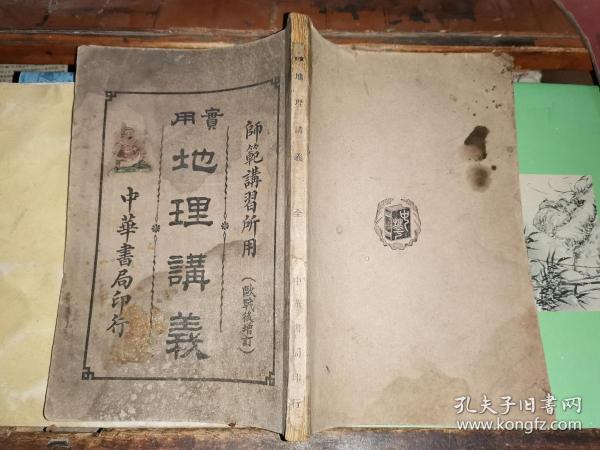 師範講習所用
（歐戰後增訂）
實用
地理講義
中華書局印行
地理講義
全
中華書局印行
孔夫子旧书网
www.kongfz.com